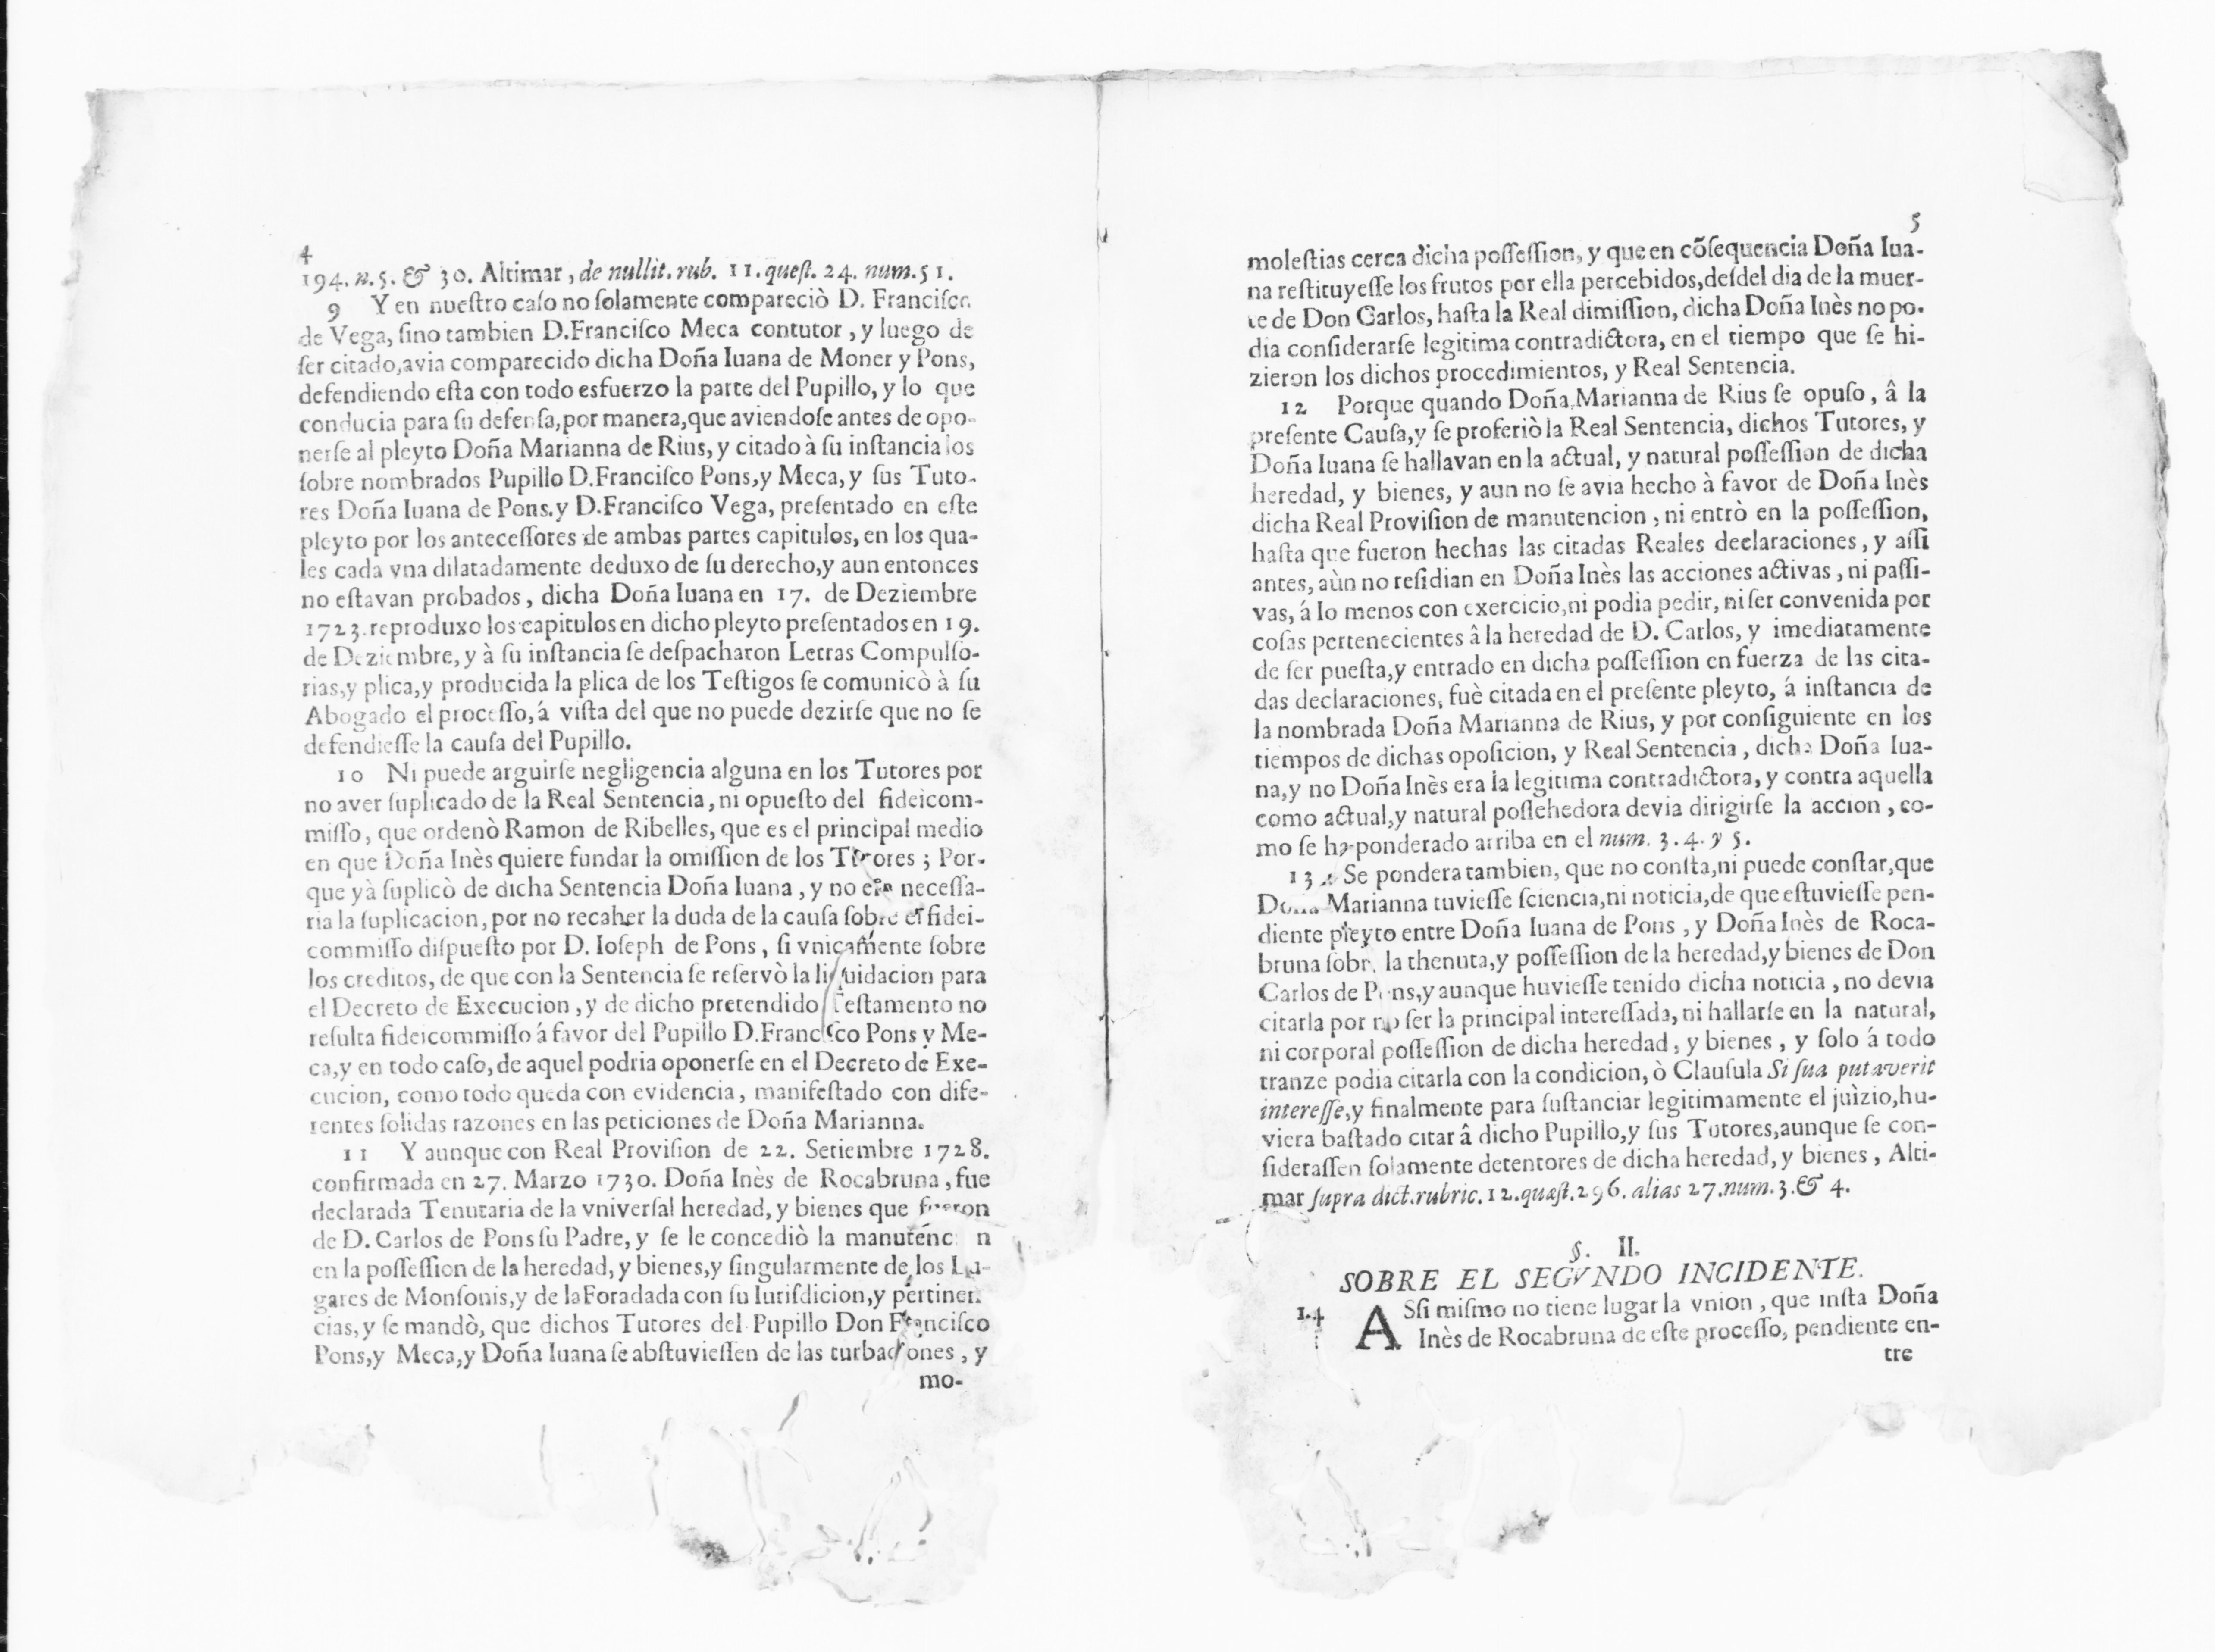 4
194. n. 5. & 30. Altimar, de nullit. rub. 11. quest. 24. num. 51.
9 Y en nueſtro caſo no ſolamente compareciò D. Franciſco
de Vega, ſino tambien D.Franciſco Meca contutor, y luego de
ſer citado,avia comparecido dicha Doña Iuana de Moner y Pons,
defendiendo eſta con todo esfuerzo la parte del Pupillo, y lo que
conducia para ſu defenſa,por manera,que aviendoſe antes de opo-
nerſe al pleyto Doña Marianna de Rius, y citado à ſu inſtancia los
ſobre nombrados Pupillo D.Franciſco Pons,y Meca, y ſus Tuto-
res Doña Iuana de Pons.y D.Franciſco Vega, preſentado en eſte
pleyto por los anteceſſores de ambas partes capitulos, en los qua-
les cada vna dilatadamente deduxo de ſu derecho,y aun entonces
no eſtavan probados, dicha Doña Iuana en 17. de Deziembre
1723.reproduxo los capitulos en dicho pleyto preſentados en 19.
de Deziembre, y à ſu inſtancia ſe deſpacharon Letras Compulſo-
rias,y plica,y producida la plica de los Teſtigos ſe comunicò à ſu
Abogado el proceſſo,á viſta del que no puede dezirſe que no ſe
defendieſſe la cauſa del Pupillo.
10 Ni puede arguirſe negligencia alguna en los Tutores por
no aver ſuplicado de la Real Sentencia, ni opueſto del fideicom-
miſſo, que ordenò Ramon de Ribelles, que es el principal medio
en que Doña Inès quiere fundar la omiſſion de los Tutores ; Por-
que yà ſuplicò de dicha Sentencia Doña Iuana, y no era neceſſa-
ria la ſuplicacion, por no recaher la duda de la cauſa ſobre el fidei-
commiſſo diſpueſto por D. Ioſeph de Pons, ſi vnicamente ſobre
los creditos, de que con la Sentencia ſe reſervò la liquidacion para
el Decreto de Execucion, y de dicho pretendido Teſtamento no
reſulta fideicommiſſo á favor del Pupillo D.Franciſco Pons y Me-
ca,y en todo caſo, de aquel podria oponerſe en el Decreto de Exe-
cucion, como todo queda con evidencia, manifeſtado con dife-
rentes ſolidas razones en las peticiones de Doña Marianna.
11 Y aunque con Real Proviſion de 22. Setiembre 1728.
confirmada en 27. Marzo 1730. Doña Inès de Rocabruna, fue
declarada Tenutaria de la vniverſal heredad, y bienes que fueron
de D. Carlos de Pons ſu Padre, y ſe le concediò la manutencion
en la poſſeſſion de la heredad, y bienes,y ſingularmente de los Lu-
gares de Monſonis,y de la Foradada con ſu Iuriſdicion,y pertinen-
cias, y ſe mandò, que dichos Tutores del Pupillo Don Franciſco
Pons,y Meca,y Doña Iuana ſe abſtuvieſſen de las turbaciones, y
mo-
5
moleſtias cerca dicha poſſeſſion, y que en cõſequencia Doña Iua-
na reſtituyeſſe los frutos por ella percebidos,deſdel dia de la muer-
te de Don Carlos, haſta la Real dimiſſion, dicha Doña Inès no po-
dia conſiderarſe legitima contradictora, en el tiempo que ſe hi-
zieron los dichos procedimientos, y Real Sentencia.
12 Porque quando Doña Marianna de Rius ſe opuſo, â la
preſente Cauſa,y ſe proferiò la Real Sentencia, dichos Tutores, y
Doña Iuana ſe hallavan en la actual, y natural poſſeſſion de dicha
heredad, y bienes, y aun no ſe avia hecho à favor de Doña Inès
dicha Real Proviſion de manutencion, ni entrò en la poſſeſſion,
haſta que fueron hechas las citadas Reales declaraciones, y aſſi
antes, aùn no reſidian en Doña Inès las acciones activas, ni paſſi-
vas, á lo menos con exercicio,ni podia pedir, ni ſer convenida por
coſas pertenecientes â la heredad de D. Carlos, y imediatamente
de ſer pueſta,y entrado en dicha poſſeſſion en fuerza de las cita-
das declaraciones, fuè citada en el preſente pleyto, á inſtancia de
la nombrada Doña Marianna de Rius, y por conſiguiente en los
tiempos de dichas opoſicion, y Real Sentencia, dicha Doña Iua-
na,y no Doña Inès era la legitima contradictora, y contra aquella
como actual,y natural poſſehedora devia dirigirſe la accion, co-
mo ſe ha ponderado arriba en el num. 3. 4. y 5.
13 Se pondera tambien, que no conſta,ni puede conſtar,que
Doña Marianna tuvieſſe ſciencia,ni noticia,de que eſtuvieſſe pen-
diente pleyto entre Doña Iuana de Pons, y Doña Inès de Roca-
bruna ſobre la thenuta,y poſſeſſion de la heredad,y bienes de Don
Carlos de Pons,y aunque huvieſſe tenido dicha noticia, no devia
citarla por no ſer la principal intereſſada, ni hallarſe en la natural,
ni corporal poſſeſſion de dicha heredad, y bienes, y ſolo á todo
tranze podia citarla con la condicion, ò Clauſula Si ſua putaverit
intereſſe,y finalmente para ſuſtanciar legitimamente el juìzio,hu-
viera baſtado citar â dicho Pupillo,y ſus Tutores,aunque ſe con-
ſideraſſen ſolamente detentores de dicha heredad, y bienes, Alti-
mar ſupra dict.rubric.12.quæſt.296. alias 27.num.3.& 4.
§. II.
SOBRE EL SEGVNDO INCIDENTE.
14 ASſi miſmo no tiene lugar la vnion, que inſta Doña
Inès de Rocabruna de eſte proceſſo, pendiente en-
tre